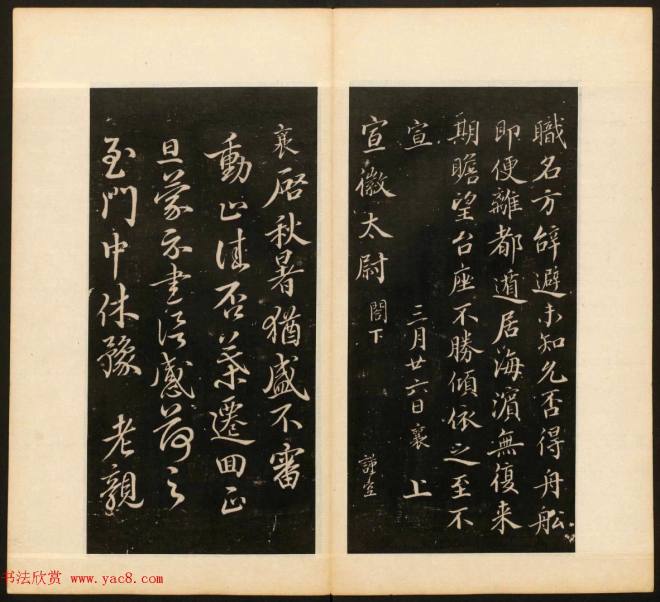 職名方辭避未知允否得舟舩
即便離都遁居海濱無復来
期瞻望台座不勝傾依之至不
宣 三月廿六日襄 上
宣徽太尉 閤下 謹空
襄啓秋暑猶盛不審
動止佳否葉遷回正
旦蒙示書信感荷之
至門中休豫 老親
书法欣赏 www.yac8.com